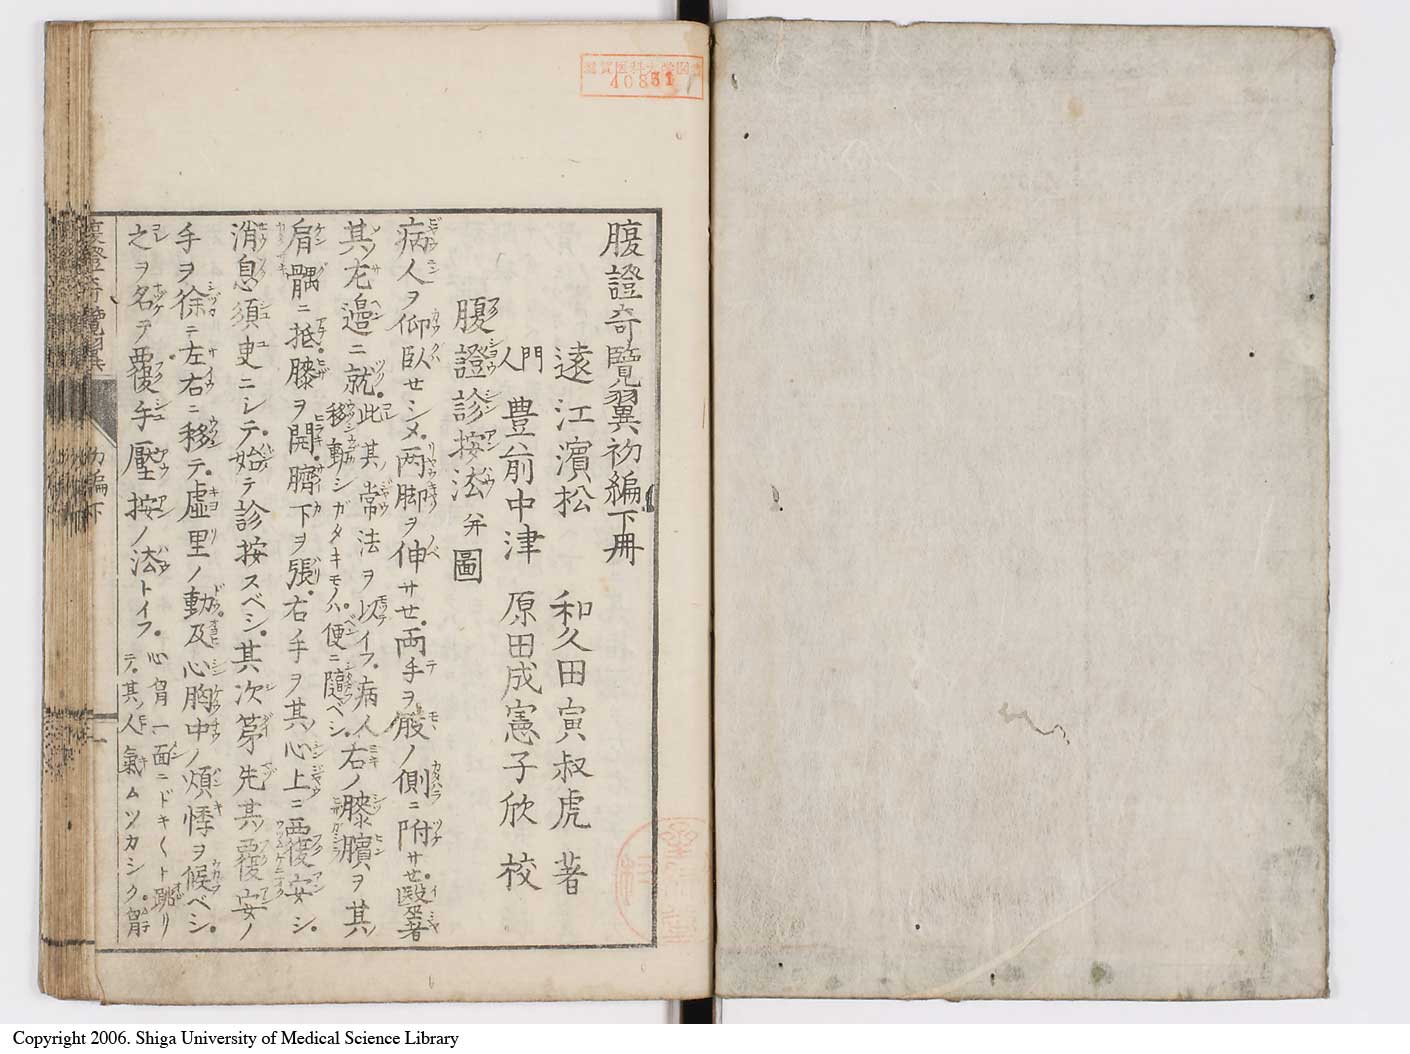 滋賀医科大学図書
40851
腹證奇覽翼初編下冊
遠江濱松 和久田寅叔虎 著
門人 豊前中津 原田成憲子欣 校
腹證診按法 并圖
病人ヲ仰臥セシメ両脚ヲ伸サセ両手ヲ股ノ側ニ附サセ醫著
其左邉ニ就此其常法ヲ以イフ病人右ノ膝臏ヲ其
移動シガタキモノハ便ニ隨ベシ
肩髃ニ抵膝ヲ開臍下ヲ張右手ヲ其心上ニ覆安シ
消息須臾ニシテ始テ診按スベシ其次第先其覆安ノ
手ヲ徐ニ左右ニ移テ虚里ノ動及心胸中ノ煩悸ヲ候ベシ
之ヲ名テ覆手壓按ノ法トイフ 心胷一面ニドキ〱ト跳リ
テ其人氣ムツカシク胷
腹證奇覽翼 初編下
Copyright 2006. Shiga University of Medical Science Library